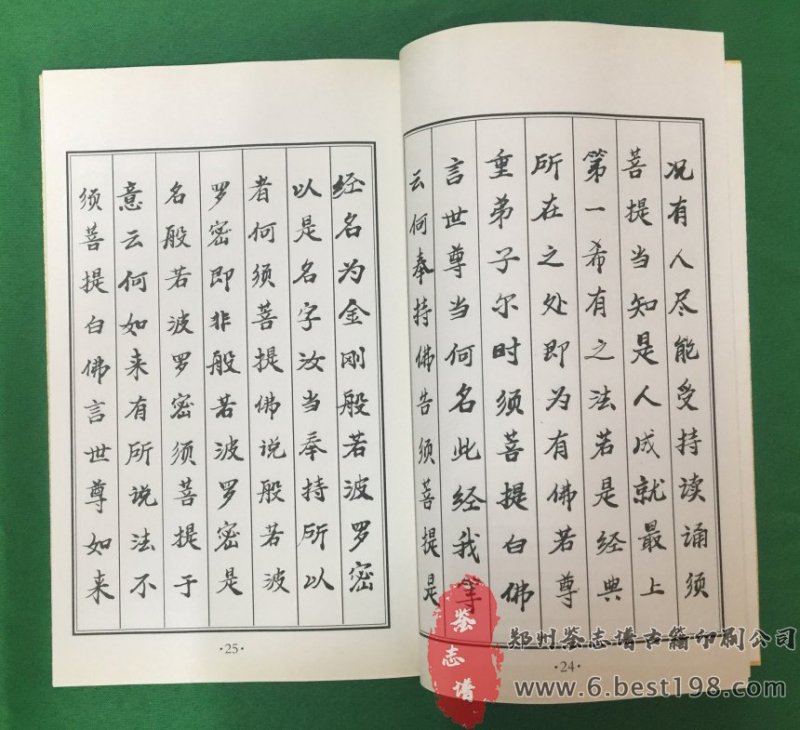 况有人尽能受持读诵须
菩提当知是人成就最上
第一希有之法若是经典
所在之处即为有佛若尊
重弟子尔时须菩提白佛
言世尊当何名此经我等
云何奉持佛告须菩提是
·24·
经名为金刚般若波罗密
以是名字汝当奉持所以
者何须菩提佛说般若波
罗密即非般若波罗密是
名般若波罗密须菩提于
意云何如来有所说法不
须菩提白佛言世尊如来
·25·
鉴志谱
郑州鉴志谱古籍印刷公司
www.6.best198.com